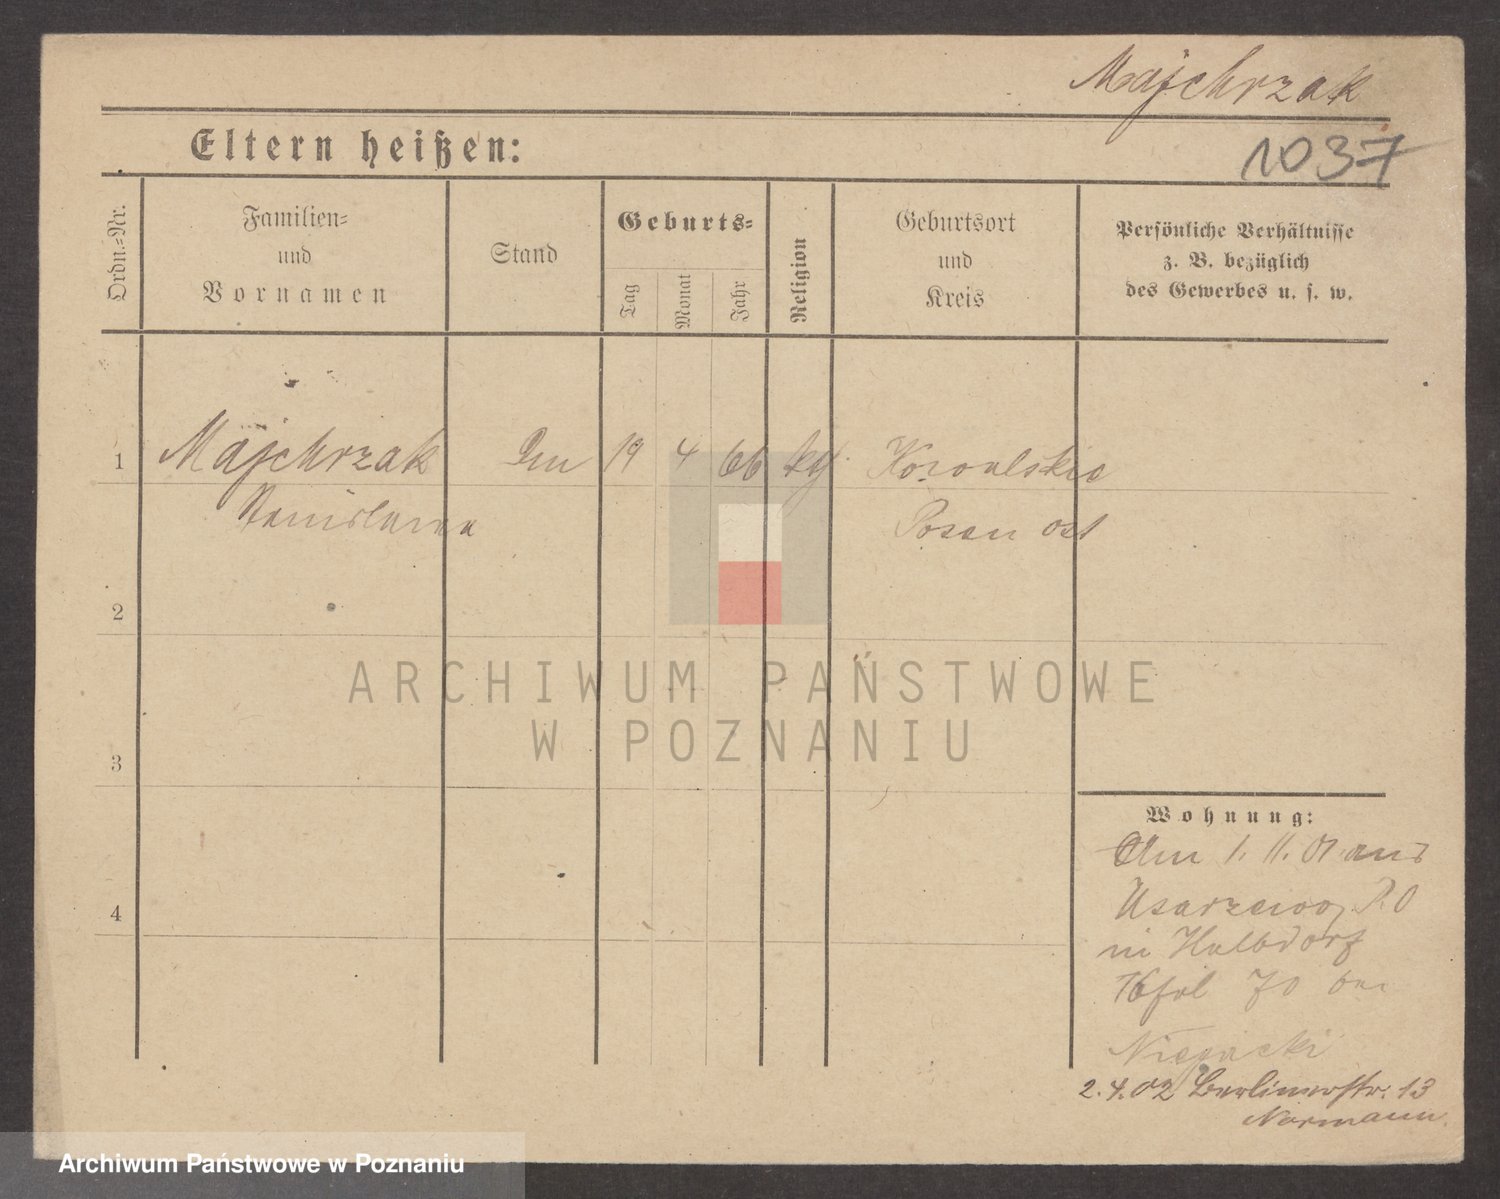 Majchrzak
1037
Eltern heißen:
Ordn.=Nr.
Familien=
und
Vornamen
Stand
Geburts=
Tag
Monat
Jahr
Religion
Geburtsort
und
Kreis
Persönliche Verhältnisse
z. B. bezüglich
des Gewerbes u. s. w.
1 Majchrzak 19 4 66
Stanislawa Posen ost
2
3
4
Wohnung:
Am 1. 11. 01 aus
Usarzewo P.O
in Halbdorf
70 bei
2.4.02 Berlinerstr. 13
Normann
ARCHIWUM PAŃSTWOWE
W POZNANIU
Archiwum Państwowe w Poznaniu